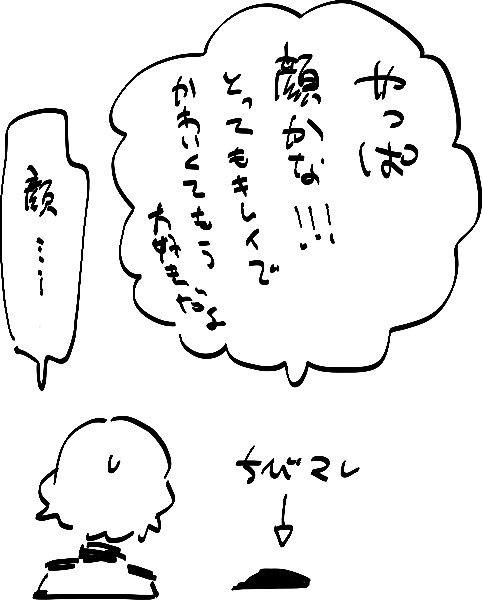 やっぱ
顔かな!!!
とってもきれいで
かわいくてもう
大好きだよ
顔……
ちびマレ